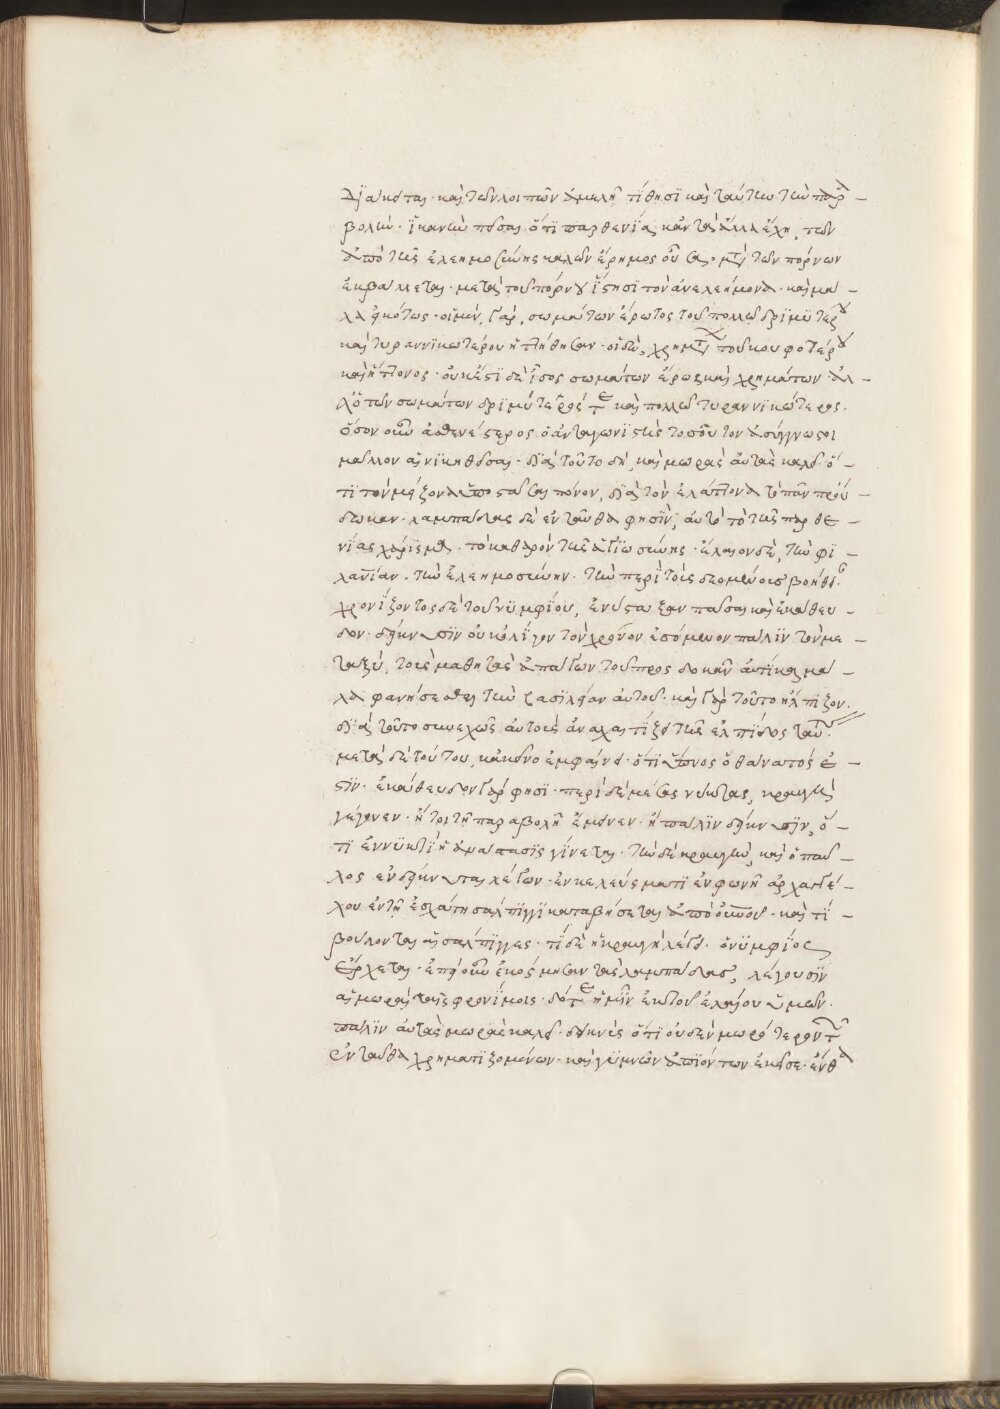 διακεῖσθαι καὶ τῶν λοιπῶν ἀμελεῖν τίθησι καὶ ταύτην τὴν παρα–
βολὴν· ἱκανὴν πεῖσαι ὅτι παρθενία κἂν τὰ ἄλλα ἔχῃ, τῶν
ἀπὸ τῆς ἐλεημοσύνης καλῶν ἔρημος οὖσα· μετὰ τῶν πόρνων
ἐκβάλλεται· μετὰ τοῦ πόρνου ἵστησι τὸν ἀνελεήμονα· καὶ μά–
λα εἰκότως· οἱ μὲν, γὰρ, σωμάτων ἔρωτος τοῦ πολλῷ δριμυτέρου
καὶ τυραννικωτέρου ἡττήθησαν· οἱ δὲ, χρημάτων τοῦ κουφοτέρου
καὶ ἥττονος· οὐκ ἔστι δὲ ἶσος σωμάτων ἔρως καὶ χρημάτων· ἀλ–
λ' ὁ τῶν σωμάτων δριμύτερός ἐστι καὶ πολλῷ τυραννικώτερος·
ὅσον οὖν ἀσθενέστερος ὁ ἀνταγωνιστὴς τοσοῦτον ἀσύγγνωστοι
μᾶλλον αἱ νικηθεῖσαι· διὰ τοῦτο δὴ, καὶ μωρὰς αὐτὰς καλεῖ· ὅ–
τι τὸν μείζονα ὑποστᾶσαι πόνον, διὰ τὸν ἐλάττονα τὸ πᾶν πρού–
δωκαν· λαμπάδας δὲ ἐνταῦθα φησὶν, αὐτὸ τὸ τῆς παρθε–
νίας χάρισμα· τὸ καθαρὸν τῆς ἁγιωσύνης· ἔλαιον δὲ, τὴν φι–
λανίαν· τὴν ἐλεημοσύνην· τὴν περὶ τοὺς δεομένους βοήθειαν·
χρονίζοντος δὲ τοῦ νυμφίου, ἐνύσταξαν πᾶσαι καὶ ἐκάθευ–
δον· δείκνυσιν οὐκ ὀλίγον τὸν χρόνον ἐσόμενον πάλιν τὸν με–
ταξύ, τοὺς μαθητὰς ἀπάγων τοῦ προσδοκᾶν αὐτίκα μά–
λα φανήσεσθαι τὴν βασιλείαν αὐτοῦ· καὶ γὰρ τοῦτο ἤλπιζον·
διὰ τοῦτο συνεχῶς αὐτοὺς ἀναχαιτίζει τῆς ἐλπίδος ταύτης·
μετὰ δὲ τούτου, κἀκεῖνο ἐμφαίνει· ὅτι ὕπνος ὁ θάνατός ἐ–
στιν· ἐκάθευδον γάρ φησι· περὶ δὲ μέσας νύκτας, κραυγὴ
γέγονεν· ἤτοι τῇ παραβολῇ ἔμενεν· ἢ πάλιν δείκνυσιν, ὅ–
τι ἐν νυκτὶ ἡ ἀνάστασις γίνεται· τὴν δὲ κραυγὴν, καὶ ὁ παῦ–
λος ἐνδείκνυται λέγων· ἐν κελεύσματι ἐν φωνῇ ἀρχαγγέ–
λου ἐν τῇ ἐσχάτῃ σάλπιγγι καταβήσεται ἀπὸ οὐνοῦ· καὶ τί–
βούλονται αἱ σάλπιγγες· τί δὲ ἡ κραυγὴ λέγει· ὁ νυμφίος
ἔρχεται· ἐπεὶ οὖν ἐκόσμησαν τὰς λαμπάδας, λέγουσιν
αἱ μωραὶ ταῖς φρονίμοις· δότε ἡμῖν ἐκ τοῦ ἐλαίου ὑμῶν·
πάλιν αὐτὰς μωρὰς καλεῖ· δεικνὺς ὅτι οὐδὲν μωρότερον τῶν
ἐνταῦθα χρηματιζομένων· καὶ γυμνῶν ἀπιόντων ἐκεῖσε· ἔνθα